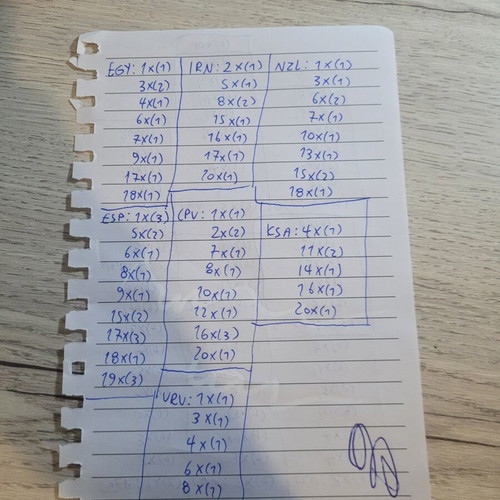 EGY: 1x(1)
3x(2)
4x(1)
6x(1)
7x(1)
9x(1)
17x(1)
18x(1)
IRN: 2x(1)
5x(1)
8x(2)
15x(1)
16x(1)
17x(1)
20x(1)
NZL: 1x(1)
3x(1)
6x(2)
7x(1)
10x(1)
13x(1)
15x(2)
18x(1)
ESP: 1x(3)
5x(2)
6x(1)
8x(1)
9x(1)
15x(2)
17x(3)
18x(1)
19x(3)
CPV: 1x(1)
2x(2)
7x(1)
8x(1)
10x(1)
12x(1)
16x(3)
20x(1)
KSA: 4x(1)
11x(2)
14x(1)
16x(1)
20x(1)
URU: 1x(1)
3x(1)
4x(1)
6x(1)
8x(1)